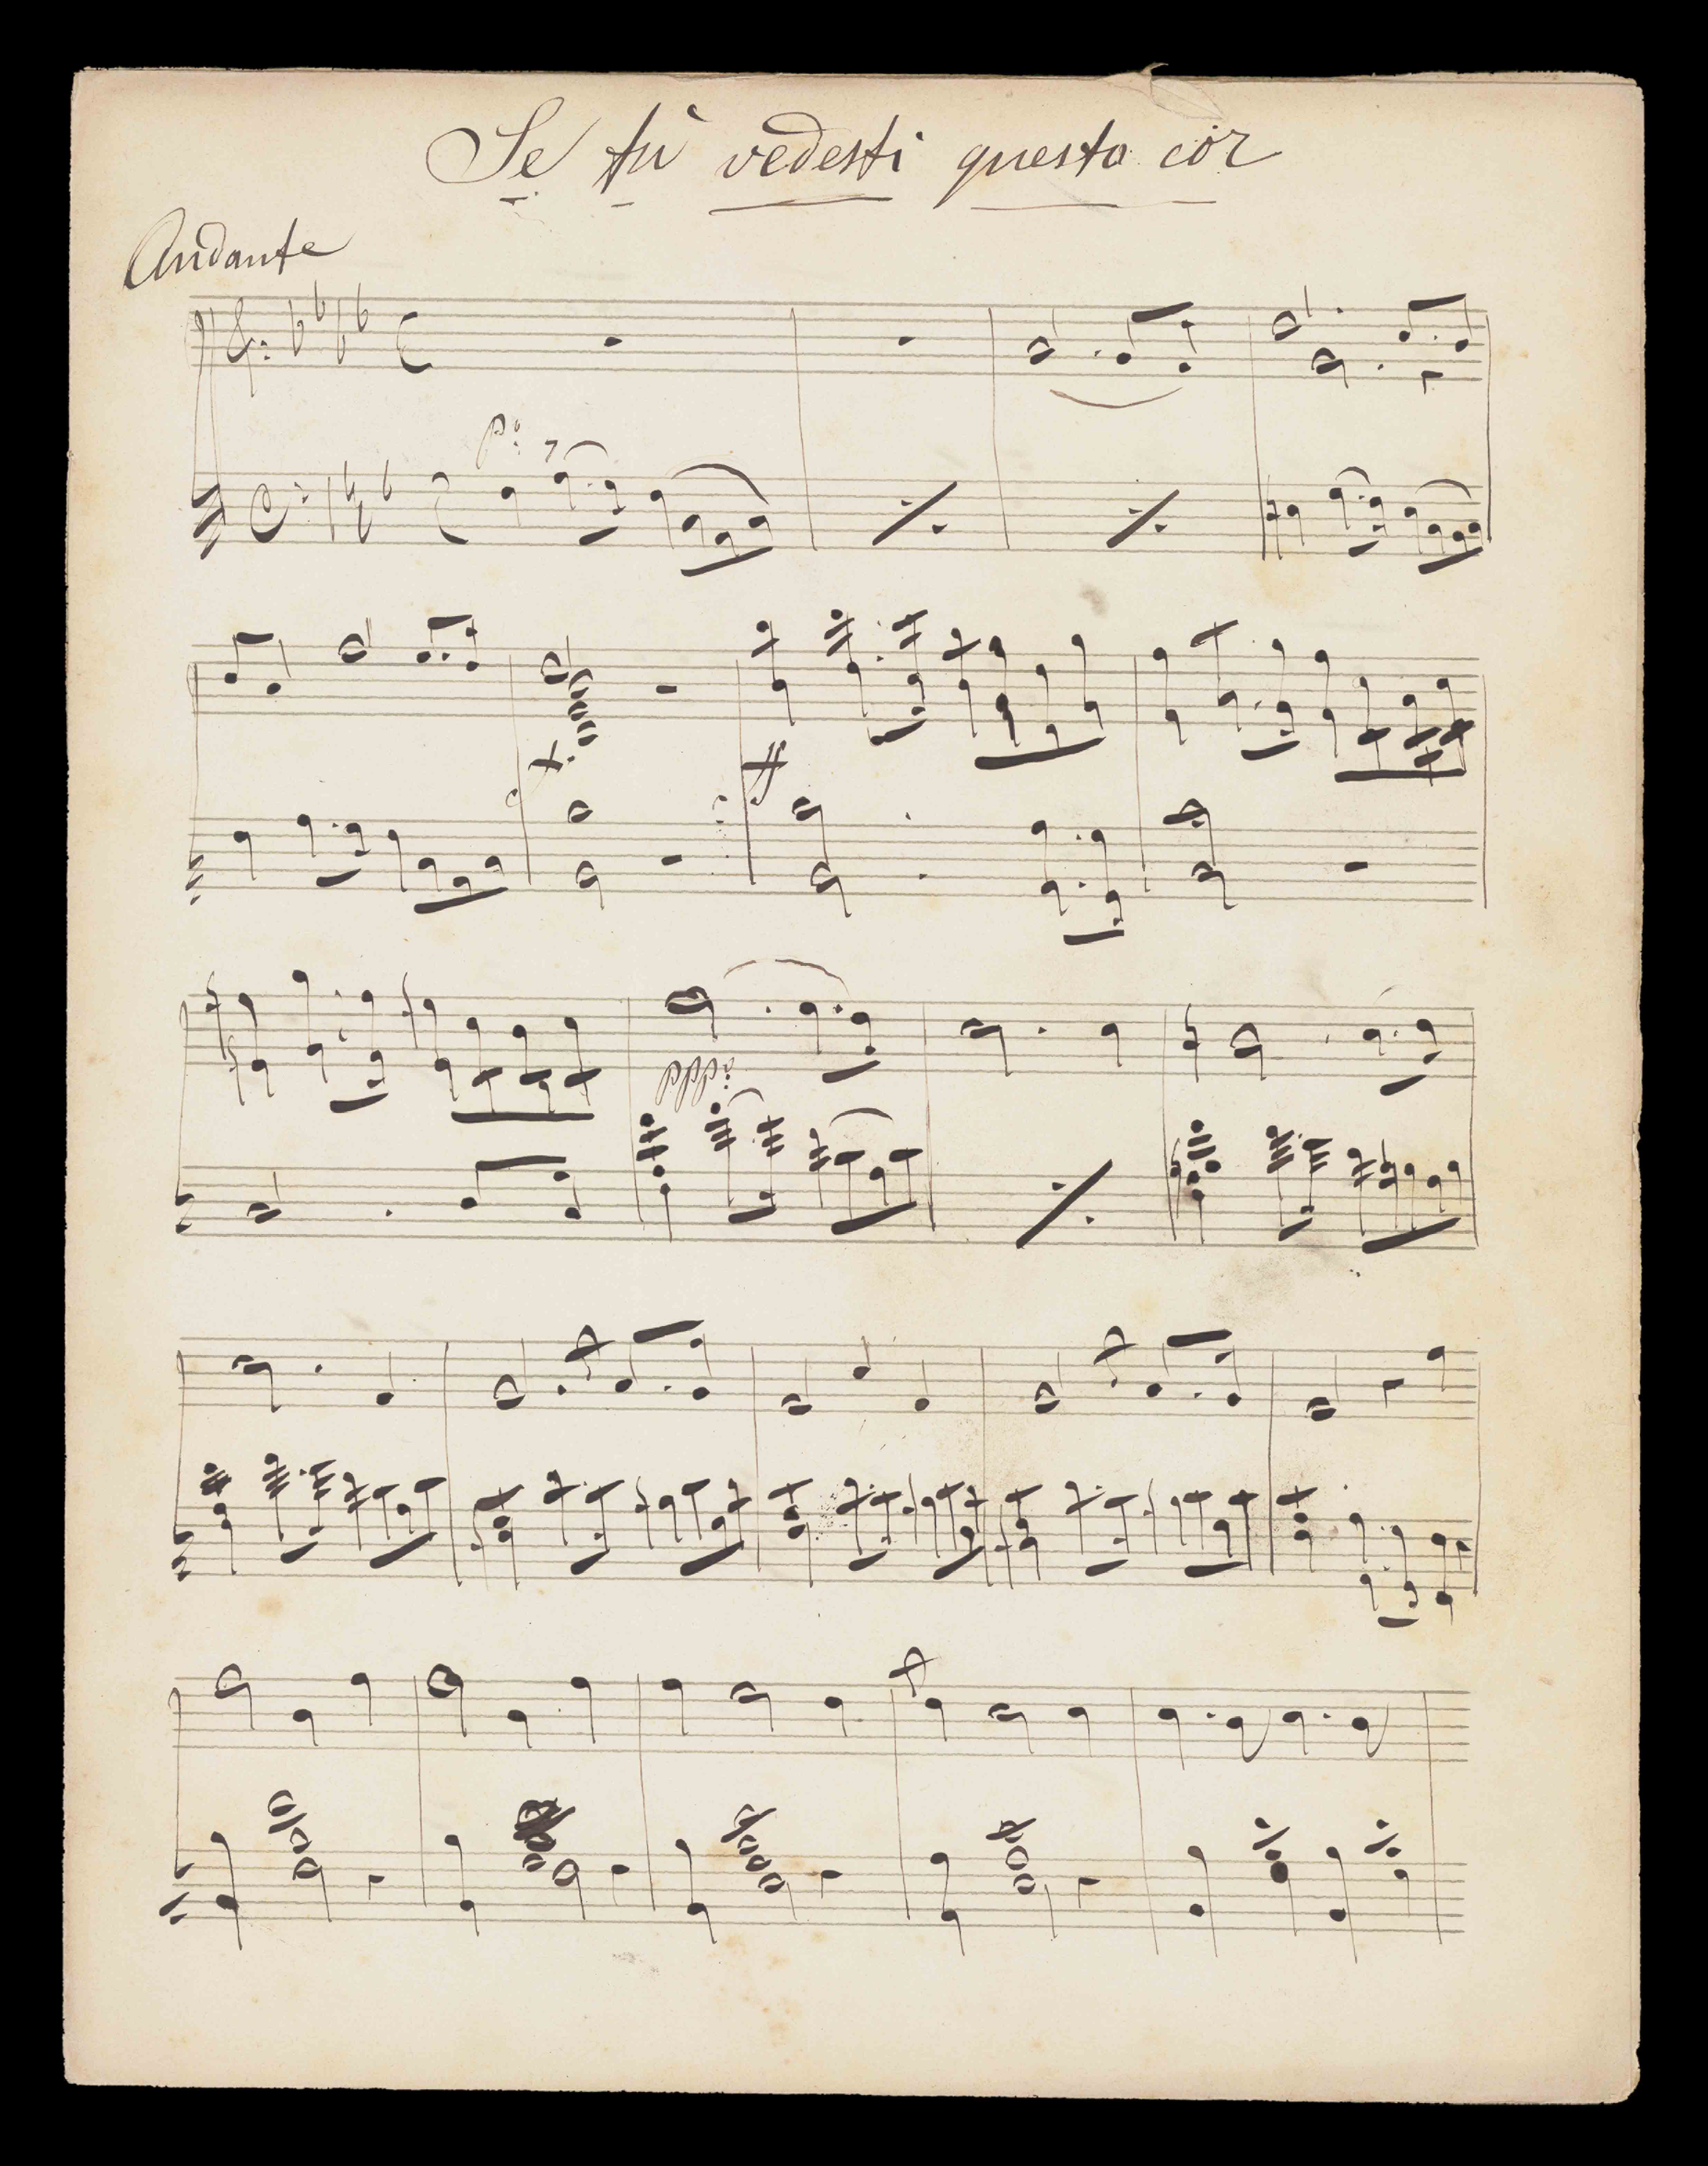 Se tù vedesti questo cor
Andante
p:
f.
ff
ppp